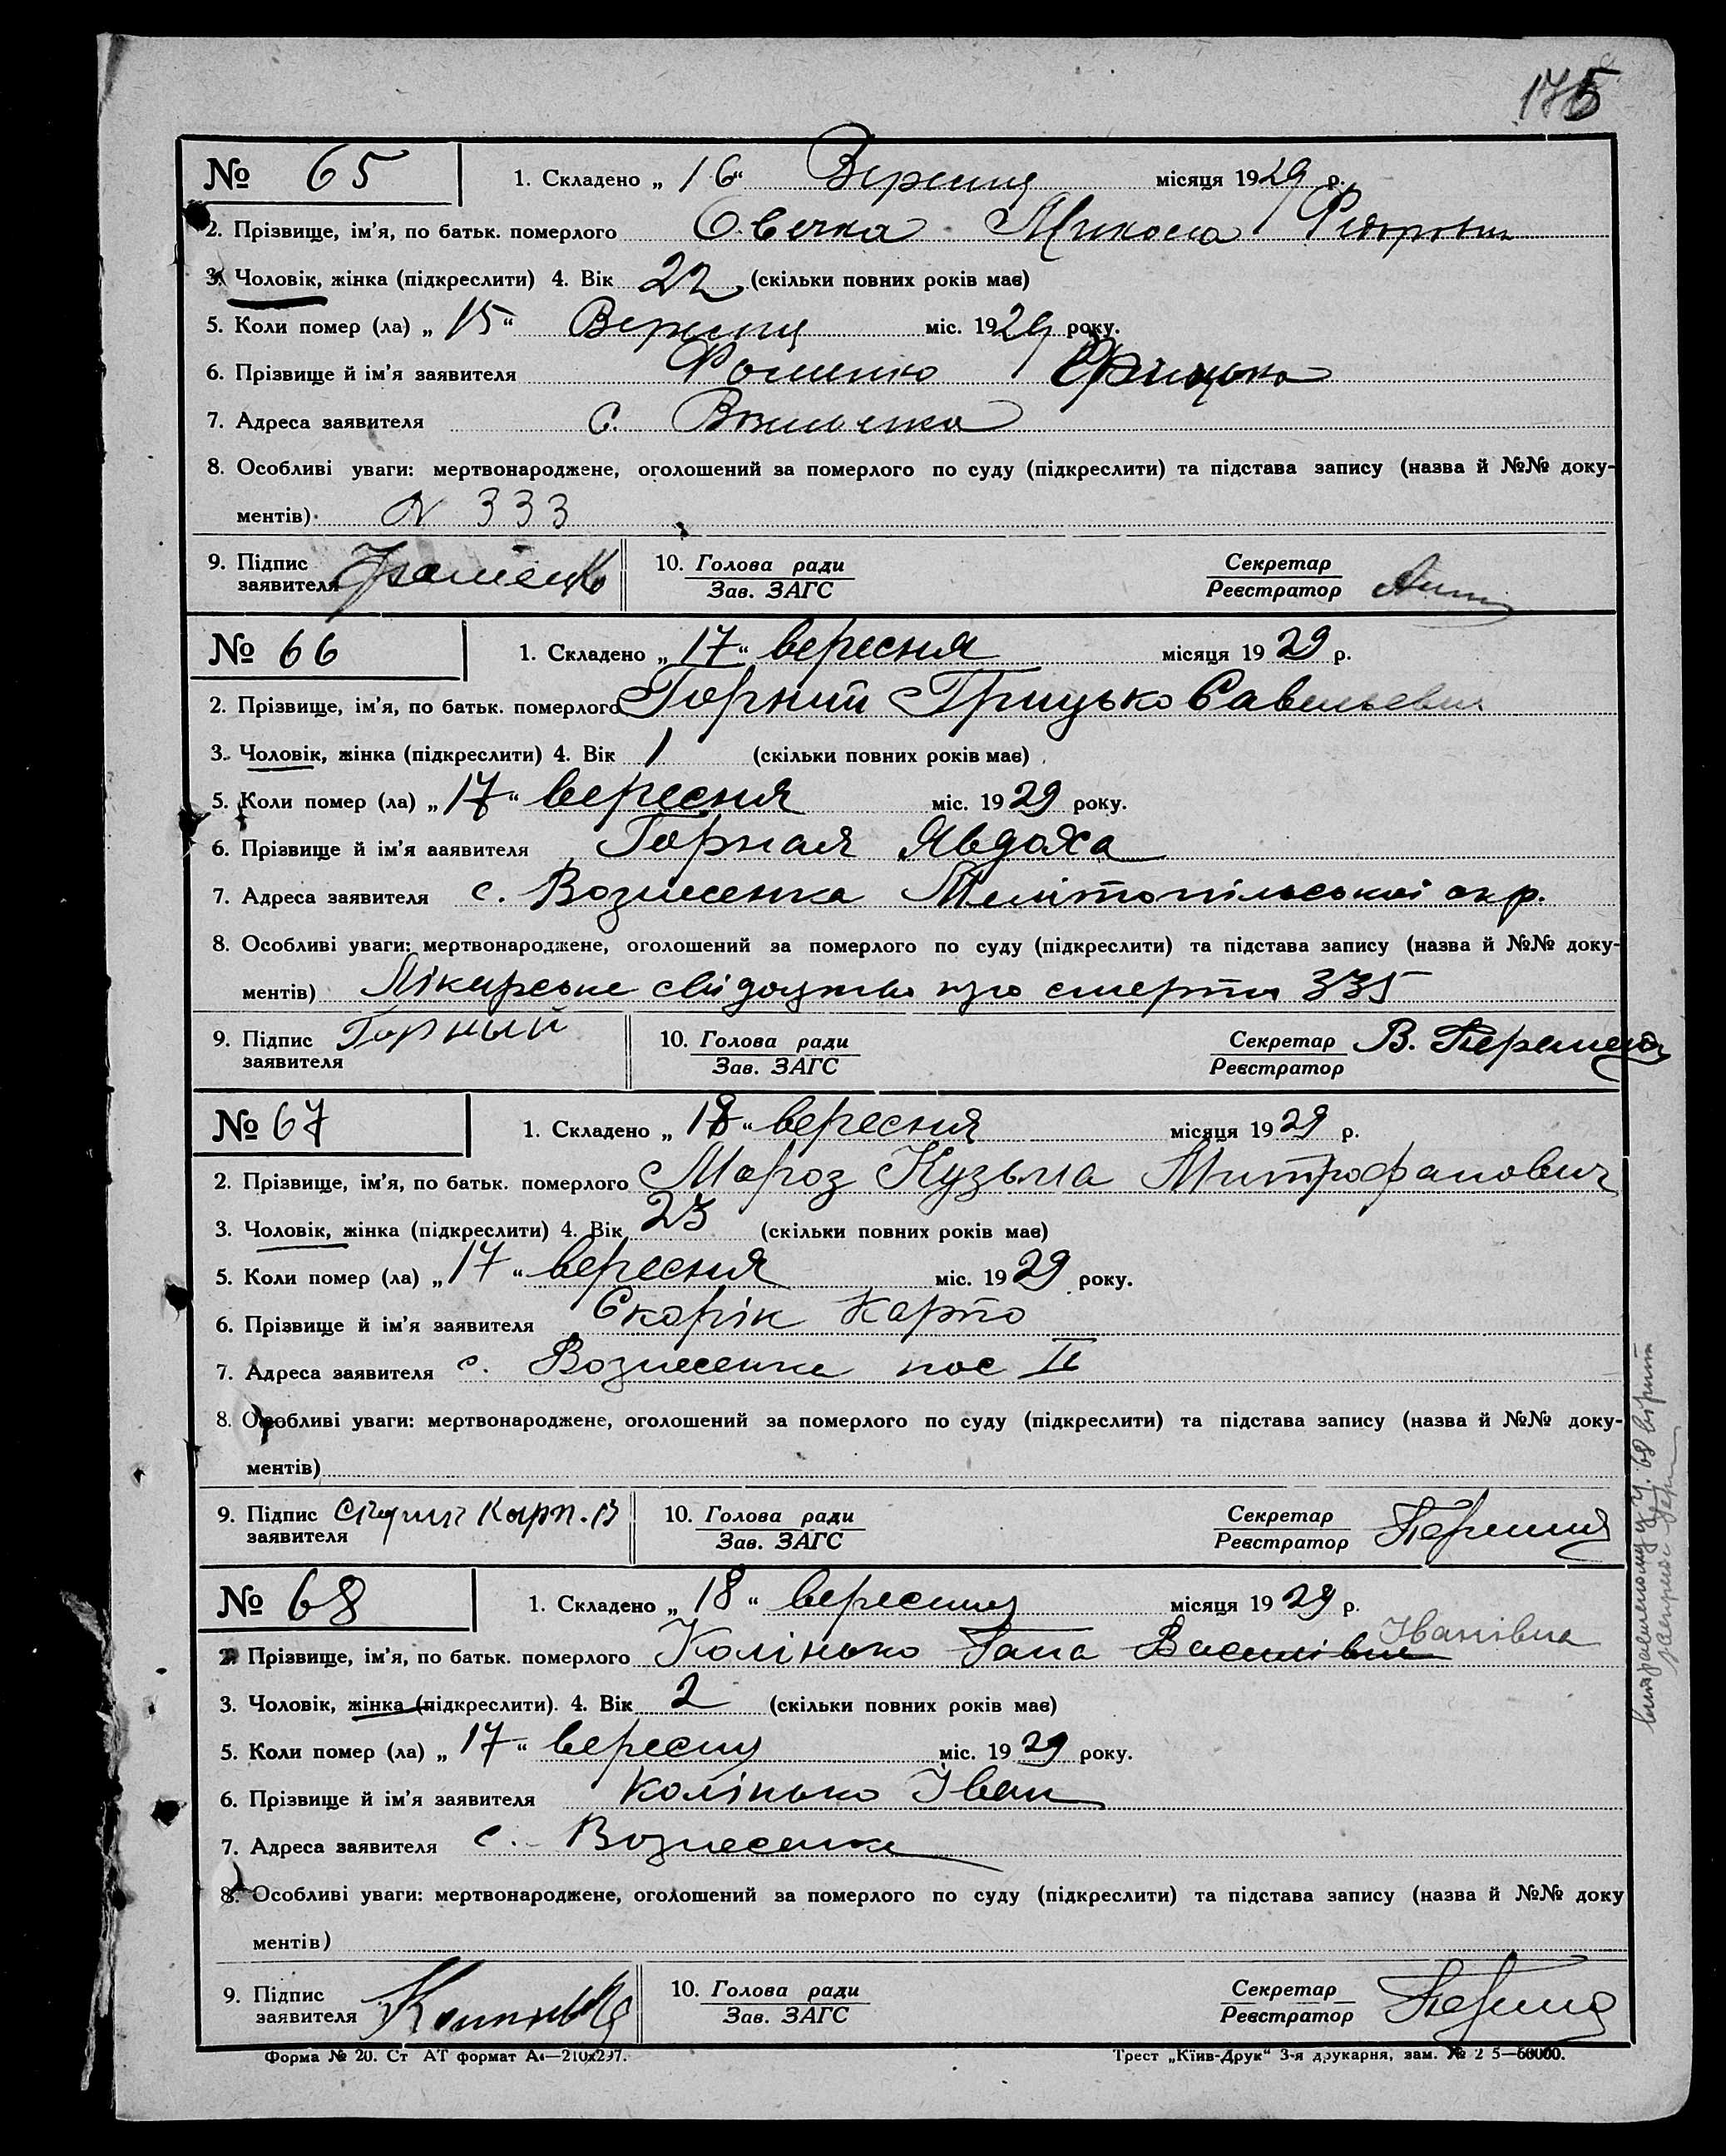 175
№ 65 1. Складено „ 16 “ Вересня місяця 1929 р.
2. Прізвище, ім’я, по батьк. померлого Овечка Микола Федорович
3. Чоловік, жінка (підкреслити) 4. Вік 22 (скільки повних років має)
5. Коли помер (ла) „ 15 “ Вересня міс. 1929 року.
6. Прізвище й ім’я заявителя Фоменко
7. Адреса заявителя с. Вознесенка
8. Особливі уваги: мертвонароджене, оголошений за померлого по суду (підкреслити) та підстава запису (назва й №№ доку-
ментів) N 333
9. Підпис заявителя 10. Голова ради Секретар
Зав. ЗАГС Реєстратор
№ 66 1. Складено „ 17 “ вересня місяця 1929 р.
2. Прізвище, ім’я, по батьк. померлого Горний Грицько Савельевич
3. Чоловік, жінка (підкреслити) 4. Вік 1 (скільки повних років має)
5. Коли помер (ла) „ 17 “ вересня міс. 1929 року.
6. Прізвище й ім’я заявителя Горная Явдоха
7. Адреса заявителя с. Вознесенка Мелітопільської окр.
8. Особливі уваги: мертвонароджене, оголошений за померлого по суду (підкреслити) та підстава запису (назва й №№ доку-
ментів) Лікарське свідоцтво про смерть 335
9. Підпис заявителя Горный 10. Голова ради Секретар В.
Зав. ЗАГС Реєстратор
№ 67 1. Складено „ 18 “ вересня місяця 1929 р.
2. Прізвище, ім’я, по батьк. померлого Мороз Кузьма Митрофанович
3. Чоловік, жінка (підкреслити) 4. Вік 23 (скільки повних років має)
5. Коли помер (ла) „ 17 “ вересня міс. 1929 року.
6. Прізвище й ім’я заявителя Скорік Карпо
7. Адреса заявителя с. Вознесенка пос II
8. Особливі уваги: мертвонароджене, оголошений за померлого по суду (підкреслити) та підстава запису (назва й №№ доку-
ментів)
9. Підпис заявителя Карп. В 10. Голова ради Секретар
Зав. ЗАГС Реєстратор
№ 68 1. Складено „ 18 “ вересня місяця 1929 р.
Іванівна
2. Прізвище, ім’я, по батьк. померлого Колінько Гана Василівна
3. Чоловік, жінка (підкреслити). 4. Вік 2 (скільки повних років має)
5. Коли помер (ла) „ 17 “ вересня міс. 1929 року.
6. Прізвище й ім’я заявителя Колінько Іван
7. Адреса заявителя с. Вознесенка
8. Особливі уваги: мертвонароджене, оголошений за померлого по суду (підкреслити) та підстава запису (назва й №№ доку
ментів)
9. Підпис заявителя 10. Голова ради Секретар
Зав. ЗАГС Реєстратор
Форма № 20. Ст АТ формат А4—210х297.
Трест „Київ-Друк“ 3-я друкарня, зам. № 2 5—60000.